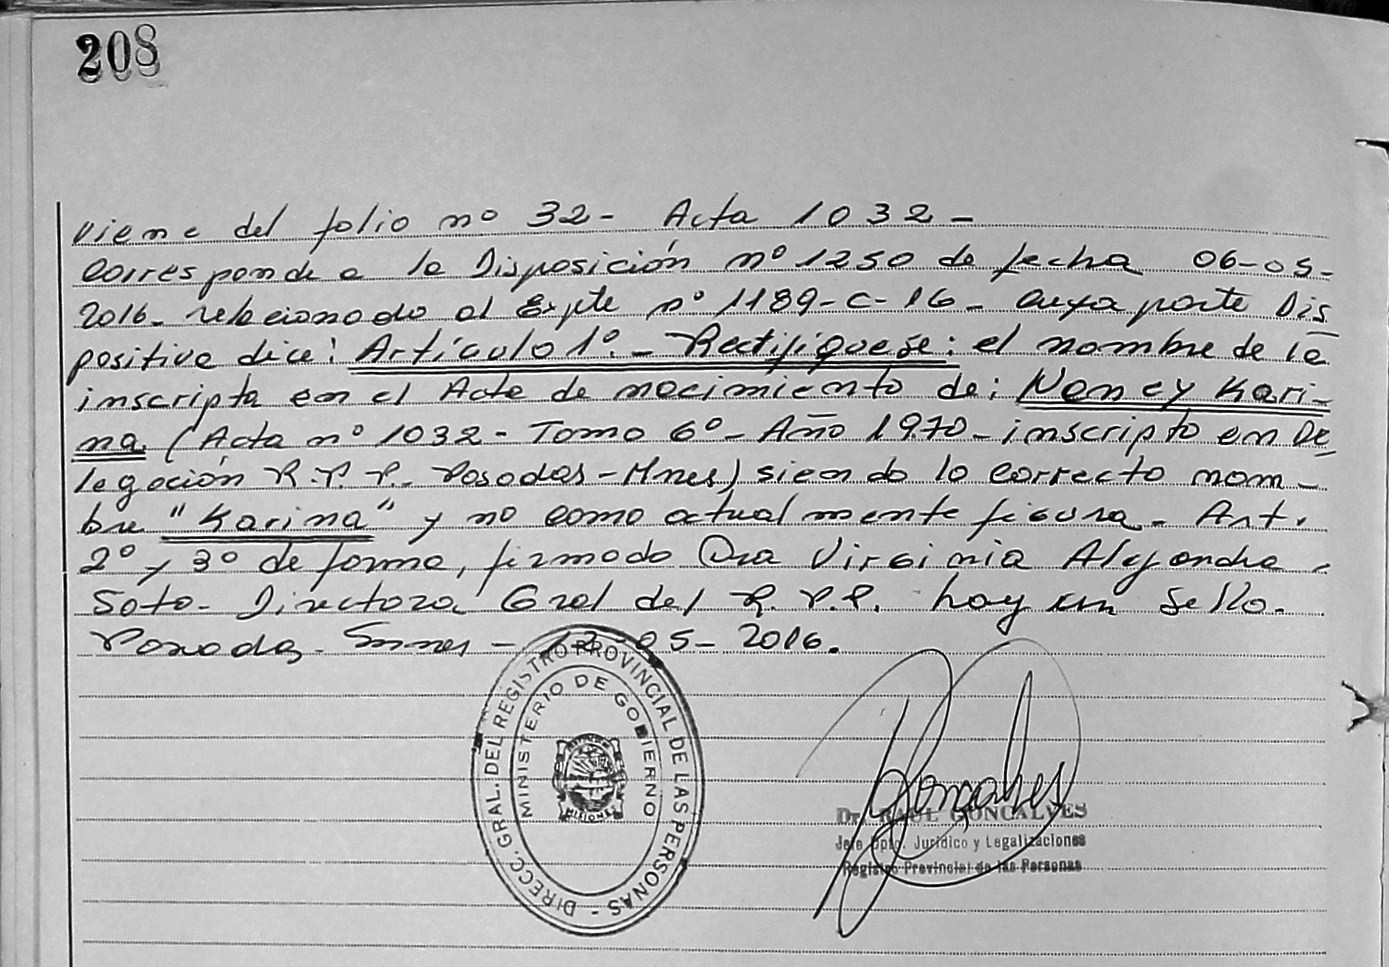 208
viene del folio nº 32- Acta 1032-
Corresponde a la Disposición nº 1250 de fecha 06-05-
2016- relacionado al Expte nº 1189-C-16- cuya parte Dis
positiva dice: Artículo 1º.- Rectifíquese: el nombre de la
inscripta en el Acta de nacimiento de: Nancy Kari-
na (Acta nº 1032- Tomo 6º- Año 1970- inscripto en De
legación R.P.P. Posadas-Mnes) siendo lo correcto nom-
bre "Karina" y no como actualmente figura. Art.
2º y 3º de forma, firmado Dra Virginia Alejandra
Soto- Directora Gral del R.P.P. hay un sello.
Posadas, Mnes - 12-05-2016.
DIRECC. GRAL. DEL REGISTRO PROVINCIAL DE LAS PERSONAS -
MINISTERIO DE GOBIERNO
MISIONES
Dr. RAUL GONCALVES
Jefe Dpto. Jurídico y Legalizaciones
Registro Provincial de las Personas